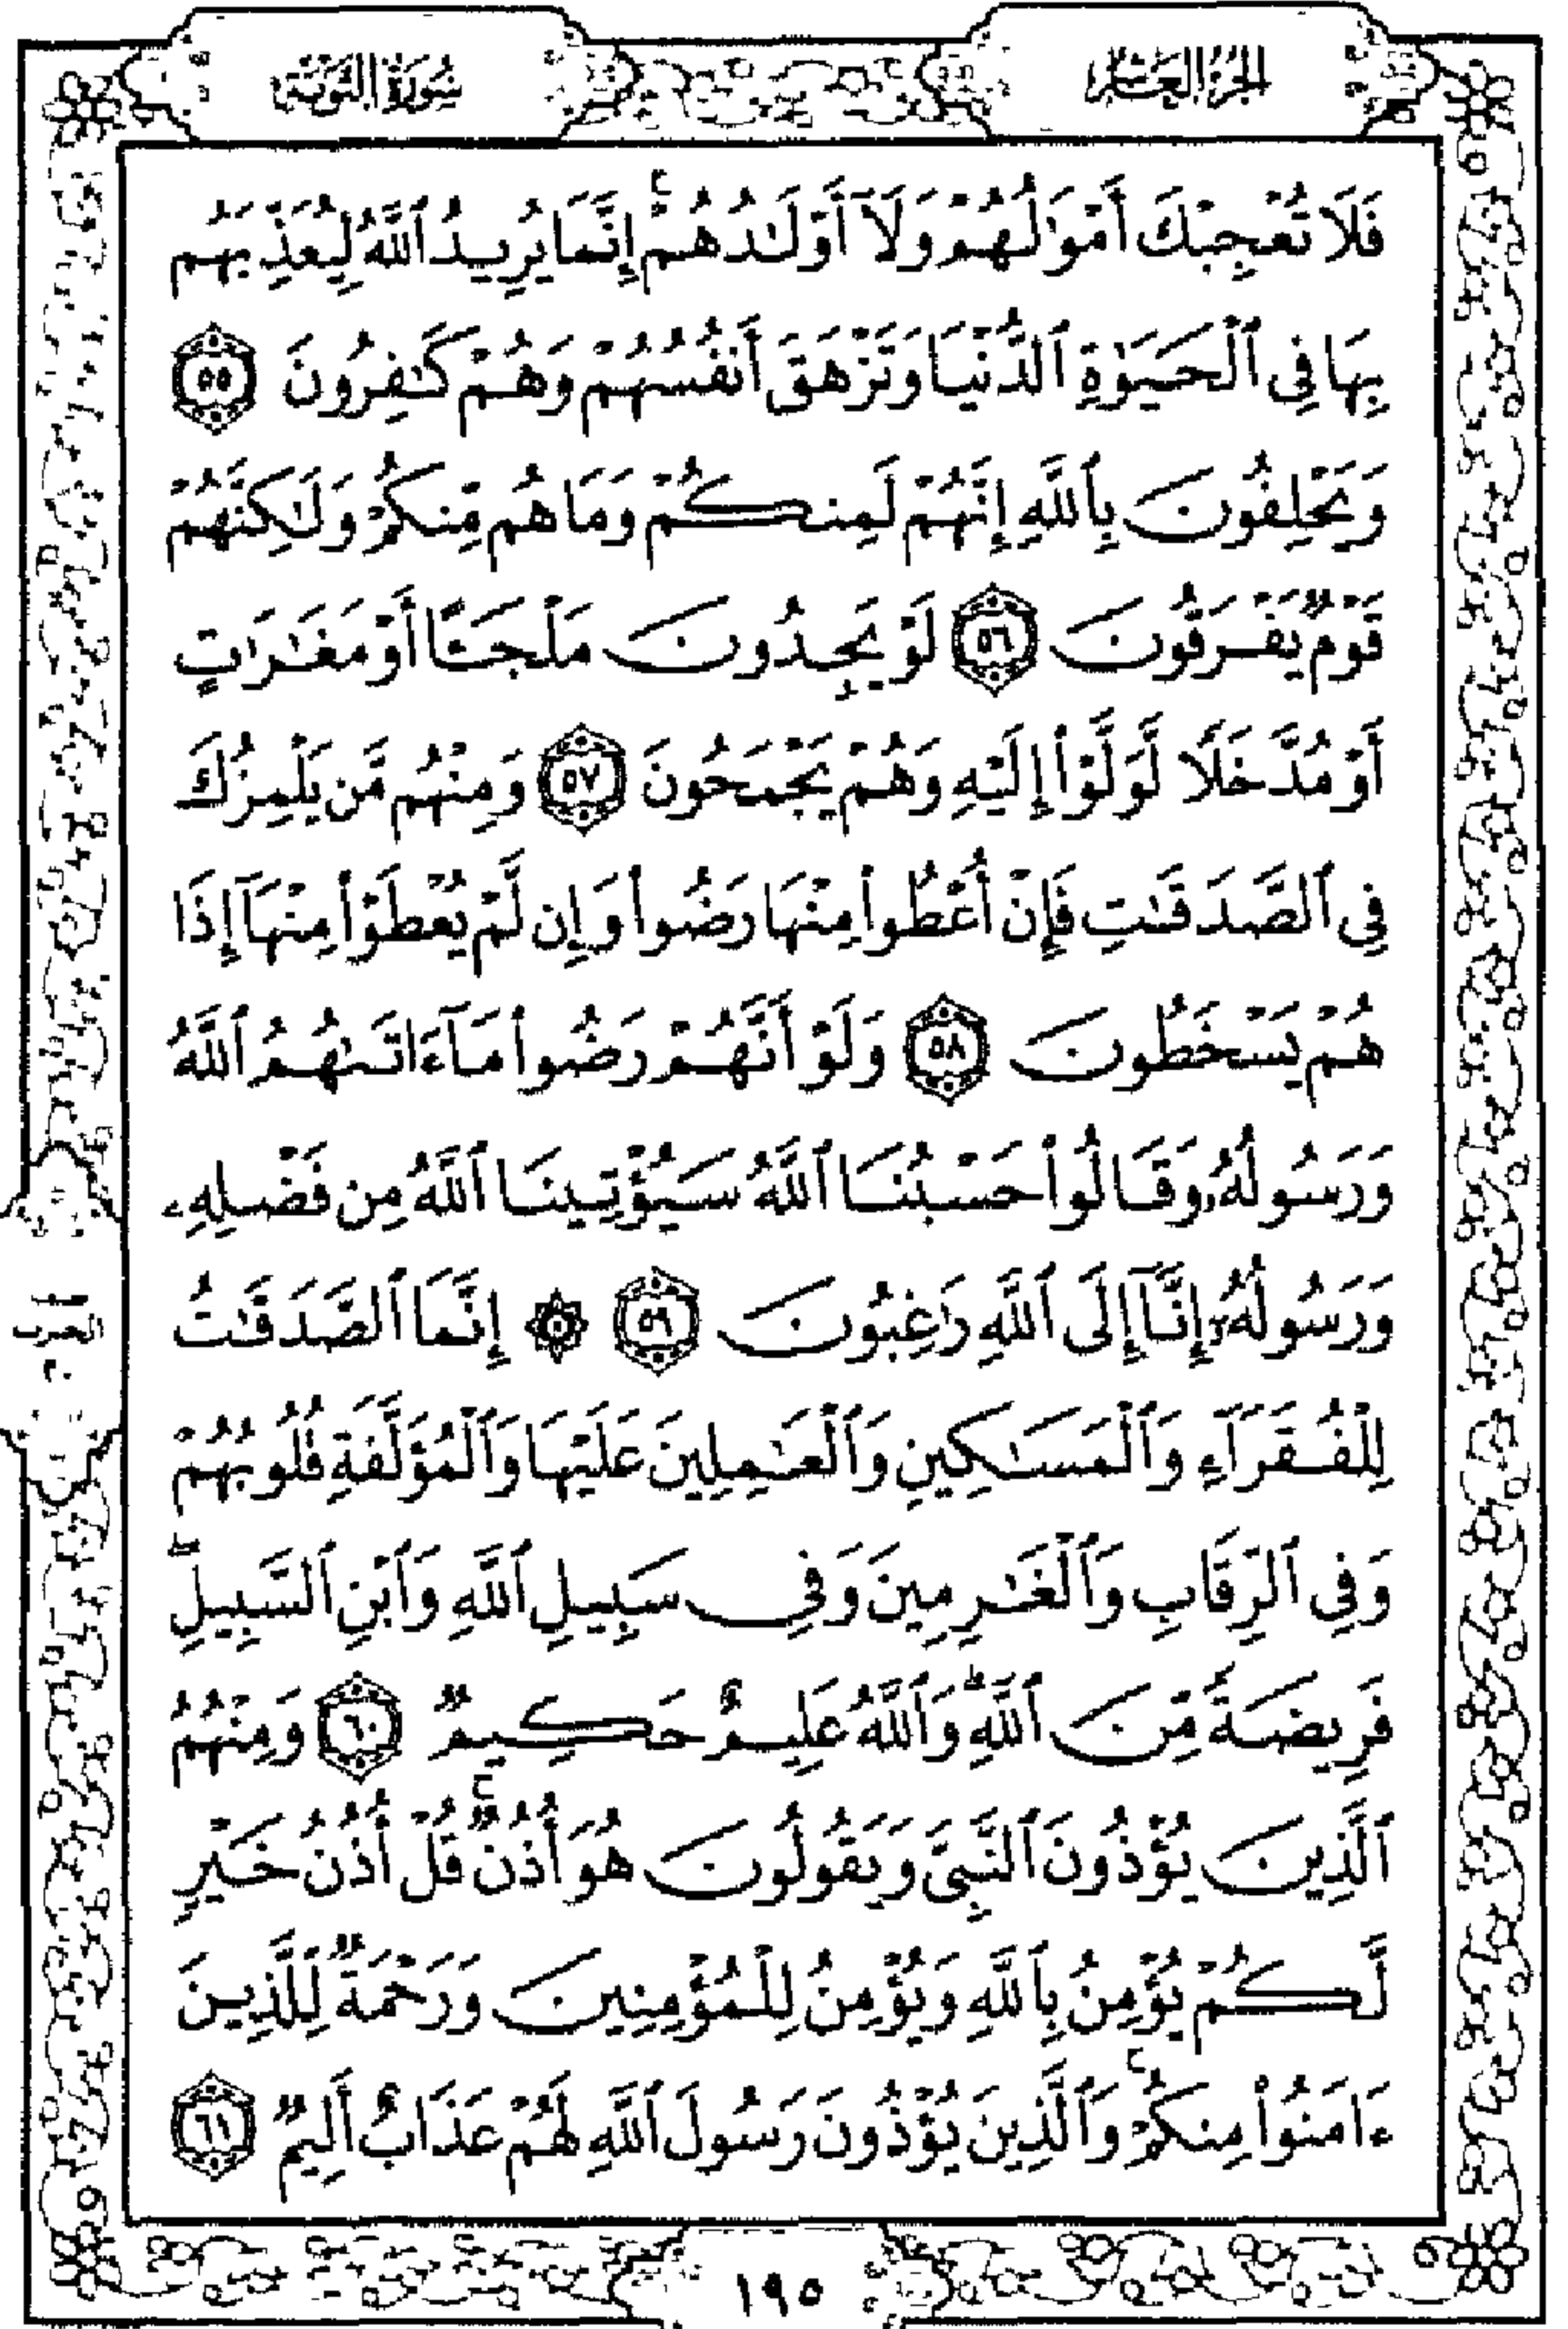 الجزء العاشر
سورة التوبة
فَلَا تُعْجِبْكَ أَمْوَٰلُهُمْ وَلَآ أَوْلَـٰدُهُمْ ۚ إِنَّمَا يُرِيدُ ٱللَّهُ لِيُعَذِّبَهُم
بِهَا فِى ٱلْحَيَوٰةِ ٱلدُّنْيَا وَتَزْهَقَ أَنفُسُهُمْ وَهُمْ كَـٰفِرُونَ ٥٥
وَيَحْلِفُونَ بِٱللَّهِ إِنَّهُمْ لَمِنكُمْ وَمَا هُم مِّنكُمْ وَلَـٰكِنَّهُمْ
قَوْمٌ يَفْرَقُونَ ٥٦ لَوْ يَجِدُونَ مَلْجَـًٔا أَوْ مَغَـٰرَٰتٍ
أَوْ مُدَّخَلًا لَّوَلَّوْا۟ إِلَيْهِ وَهُمْ يَجْمَحُونَ ٥٧ وَمِنْهُم مَّن يَلْمِزُكَ
فِى ٱلصَّدَقَـٰتِ فَإِنْ أُعْطُوا۟ مِنْهَا رَضُوا۟ وَإِن لَّمْ يُعْطَوْا۟ مِنْهَآ إِذَا
هُمْ يَسْخَطُونَ ٥٨ وَلَوْ أَنَّهُمْ رَضُوا۟ مَآ ءَاتَىٰهُمُ ٱللَّهُ
وَرَسُولُهُۥ وَقَالُوا۟ حَسْبُنَا ٱللَّهُ سَيُؤْتِينَا ٱللَّهُ مِن فَضْلِهِۦ
وَرَسُولُهُۥٓ إِنَّآ إِلَى ٱللَّهِ رَٰغِبُونَ ٥٩ ۞ إِنَّمَا ٱلصَّدَقَـٰتُ
الحزب
لِلْفُقَرَآءِ وَٱلْمَسَـٰكِينِ وَٱلْعَـٰمِلِينَ عَلَيْهَا وَٱلْمُؤَلَّفَةِ قُلُوبُهُمْ
وَفِى ٱلرِّقَابِ وَٱلْغَـٰرِمِينَ وَفِى سَبِيلِ ٱللَّهِ وَٱبْنِ ٱلسَّبِيلِ ۖ
فَرِيضَةً مِّنَ ٱللَّهِ ۗ وَٱللَّهُ عَلِيمٌ حَكِيمٌ ٦٠ وَمِنْهُمُ
ٱلَّذِينَ يُؤْذُونَ ٱلنَّبِىَّ وَيَقُولُونَ هُوَ أُذُنٌ ۚ قُلْ أُذُنُ خَيْرٍ
لَّكُمْ يُؤْمِنُ بِٱللَّهِ وَيُؤْمِنُ لِلْمُؤْمِنِينَ وَرَحْمَةٌ لِّلَّذِينَ
ءَامَنُوا۟ مِنكُمْ ۚ وَٱلَّذِينَ يُؤْذُونَ رَسُولَ ٱللَّهِ لَهُمْ عَذَابٌ أَلِيمٌ ٦١
١٩٥